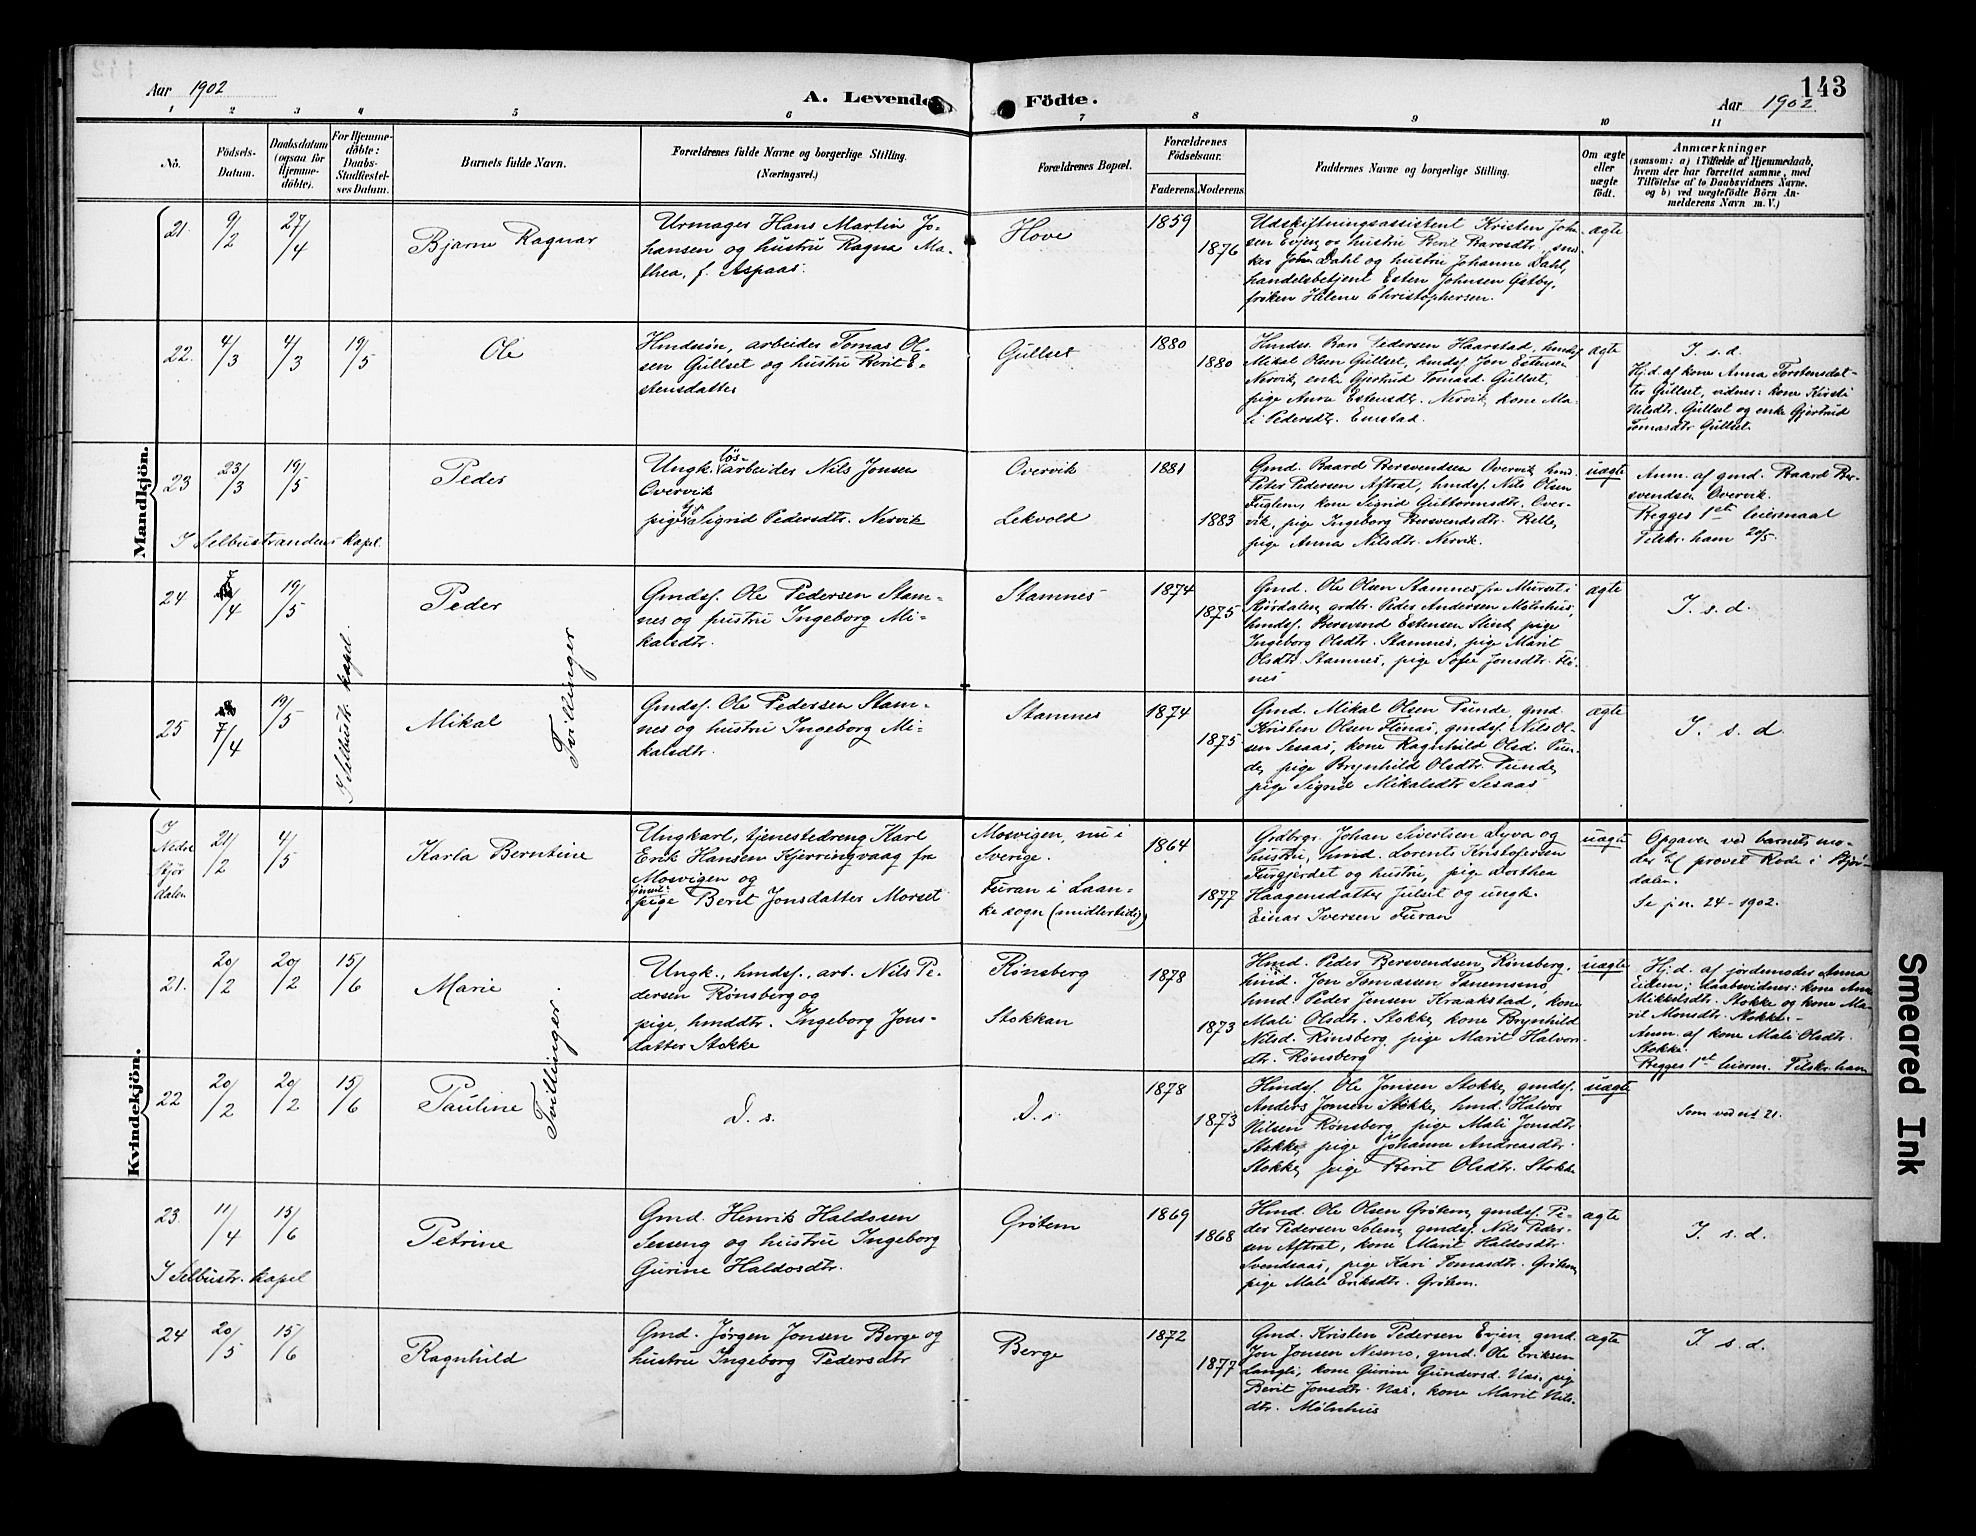 143
Aar 1902
A. Levende Födte.
Aar 1902
1 2 3 4 5 6 7 8 9 10 11
No.
Födsels-
Datum.
Daabsdatum
(ogsaa for
Hjemme-
döbte).
For Hjemme-
döbte:
Daabs-
Stadfæstel-
ses Datum.
Barnets fulde Navn.
Forældrenes fulde Navne og borgerlige Stilling.
(Næringsvei.)
Forældrenes Bopæl.
Forældrenes
Födselsaar.
Faderens.
Moderens.
Faddernes Navne og borgerlige Stilling.
Om ægte
eller
uægte
födt.
Anmærkninger
(saasom: a) i Tilfælde af Hjemmedaab,
hvem der har forrettet samme, med
Tilföielse af to Daabsvidners Navne,
og b) ved uægtefödte Börn An-
melderens Navn m. V.)
Mandkjön.
21.
9/2
27/4
Bjarne Ragnar
Urmager Hans Martin Jo-
hansen og hustru Ragna Ma-
thea, f. Aspaas.
Hove
1859
1876
Udskiftningsassistent Kristen John-
sen Evjen og hustru Berit Barosdtr., sned-
ker John Dahl og hustru Johanne Dahl,
handelsbetjent Esten Johnsen Østby,
frøken Helene Christophersen.
ægte
22.
4/3
4/3
19/5
Ole
Hmdssøn, arbeider Tomas Ol-
sen Gullset og hustru Berit E-
stensdatter
Gullset
1880
1880
Hmdsf. Bar. Pedersen Haarstad, hmdsf
Mikal Olsen Gullset, hmdsf. Jon Estensen
Nervik, enke Gjertrud Tomasd. Gullset,
pige Anne Estensdtr. Nervik, kone Ma-
li Pedersdtr. Emstad.
ægte
I. s. d.
Hj.d. af kone Anna Torstensdat-
ter Gullset, vidner: kone Kirsti
Nilsdtr. Gullset og enke Gjertrud
Tomasdtr. Gullset.
23
23/3
19/5
Peder
I Selbustrandens kapel.
Ungk. løs-arbeider Nils Jonsen
Overvik
og
pige Sigrid Pedersdtr. Nervik
Overvik
Lekvold
1881
1883
Gmd. Baard Bersvendsen Overvik, hmd.
Peter Pedersen Aftret, hmdsf. Nils Olsen
Fuglem, kone Sigrid Guttormsdtr. Over-
vik, pige Ingeborg Bersvendsdtr. Kelle,
pige Anna Nilsdtr. Nervik.
uægte
Anm. af gmd. Baard Ber-
svendsen Overvik.
Begges 1st leiermaal
Tilskr. ham 20/5.
24
7/4
19/5
I Selbustr. kapel.
Peder
Tvillinger
Gmdsf. Ole Pedersen Stam-
nes og hustru Ingeborg Mi-
kalsdtr.
Stamnes
1874
1875
Gmd. Ole Olsen Stamnes fra Murset i
Stjördalen, grdbr. Peder Andersen Mölnhus,
hmdsf. Bersvend Estensen Slind, pige
Ingeborg Olsdtr. Stamnes, pige Marit
Olsdtr. Stamnes, pige Sofie Jonsdtr. Flö-
nes
ægte
I. s. d.
25
7/4
19/5
Mikal
Gmdsf. Ole Pedersen Stam-
nes og hustru Ingeborg Mi-
kalsdtr.
Stamnes
1874
1875
Gmd. Mikal Olsen Punde, gmd.
Kristen Olsen Flönæs, gmdsf. Nils Ol-
sen Sesaas, kone Ragnhild Olsd. Pun-
de, pige Brynhild Olsdtr. Punde,
pige Sigrid Mikalsdtr. Sesaas
ægte
I. s. d.
Kvindekjön.
I
Nedre
Stjör
dalen
21/2
4/5
Karla Berntine
Ungkarl, tjenestedreng Karl
Erik Hansen Kjerringvaag fra
Mosvigen og
pige Berit Jonsdatter Morset
Mosvigen, nu i
Sverige.
Furan i Laan-
ke sogn (midlertidig)
1864
1877
Grdbrgr. Johan Sivertsen Dyva og
hustru, hmd. Lorents Kristofersen
Furgjerdet og hustru, pige Dorthea
Haagensdatter Julset og ungk.
Einar Iversen Furan
uægte
Opgaver ved barnets mo-
der v/ provst Rode i Stjör-
dalen.
Se j.nr. 24-1902.
21.
20/2
20/2
15/6
Marie
Tvillinger.
Ungk., hmdsf., arb. Nils Pe-
dersen Rönsberg og
pige, hmddtr. Ingeborg Jons-
datter Stokke
Rönsberg
Stokkan
1878
1873
Hmd. Peder Bersvendsen Rönsberg,
hmd. Jon Tomassen Tanemsmo,
hmd Peder Jensen Kraakstad, kone
Mali Olsdtr. Stokke, kone Brynhild
Nilsd. Rönsberg, pige Marit Halvors-
dtr. Rönsberg
uægte
Hj.d. af jordemoder Anna
Uidem; daabsvidner: kone Anne
Mikkelsdtr. Stokke og kone Ma-
rit Monsdtr. Stokke.-
Anm. af kone Mali Olsdtr.
Stokke.
Begges 1st leierm. Tilskr. ham
22
20/2
20/2
15/6
Pauline
D. s.
D. s.
1878
1873
Hmdsf. Ole Jonsen Stokke, gmdsf.
Anders Jonsen Stokke, hmd. Halvor
Nilsen Rönsberg, pige Mali Jonsdtr.
Stokke, pige Johanna Andreasdtr.
Stokke, pige Berit Olsdtr. Stokke
uægte
Som ved nr. 21.
23.
11/4
15/6
I Selbustr. kapel
Petrine
Gmd. Henrik Haldosen
Sesseng og hustru Ingeborg
Gurine Haldosdtr.
Grötem
1869
1868
Hmd. Ole Olsen Grötem, gmdsf. Pe-
der Pedersen Solem, gmdsf. Nils Peder-
sen Aftret, kone Marit Haldosdtr.
Svendsaas, pige Kari Tomasdtr. Grötem,
pige Mali Eriksdtr. Grötem.
ægte
I. s. d.
24
20/5
15/6
Ragnhild
Gmd. Jörgen Jonsen Berge og
hustru Ingeborg Pedersdtr
Berge
1872
1877
Gmd. Kristen Pedersen Evjen, gmd.
Jon Jonsen Nesmo, gmd. Ole Eriksen
Langli, kone Gurine Gundersd. Næs, pige
Berit Jonsdtr. Næs, kone Marit Nils-
dtr. Mölnhus
ægte
I. s. d.
Smeared Ink